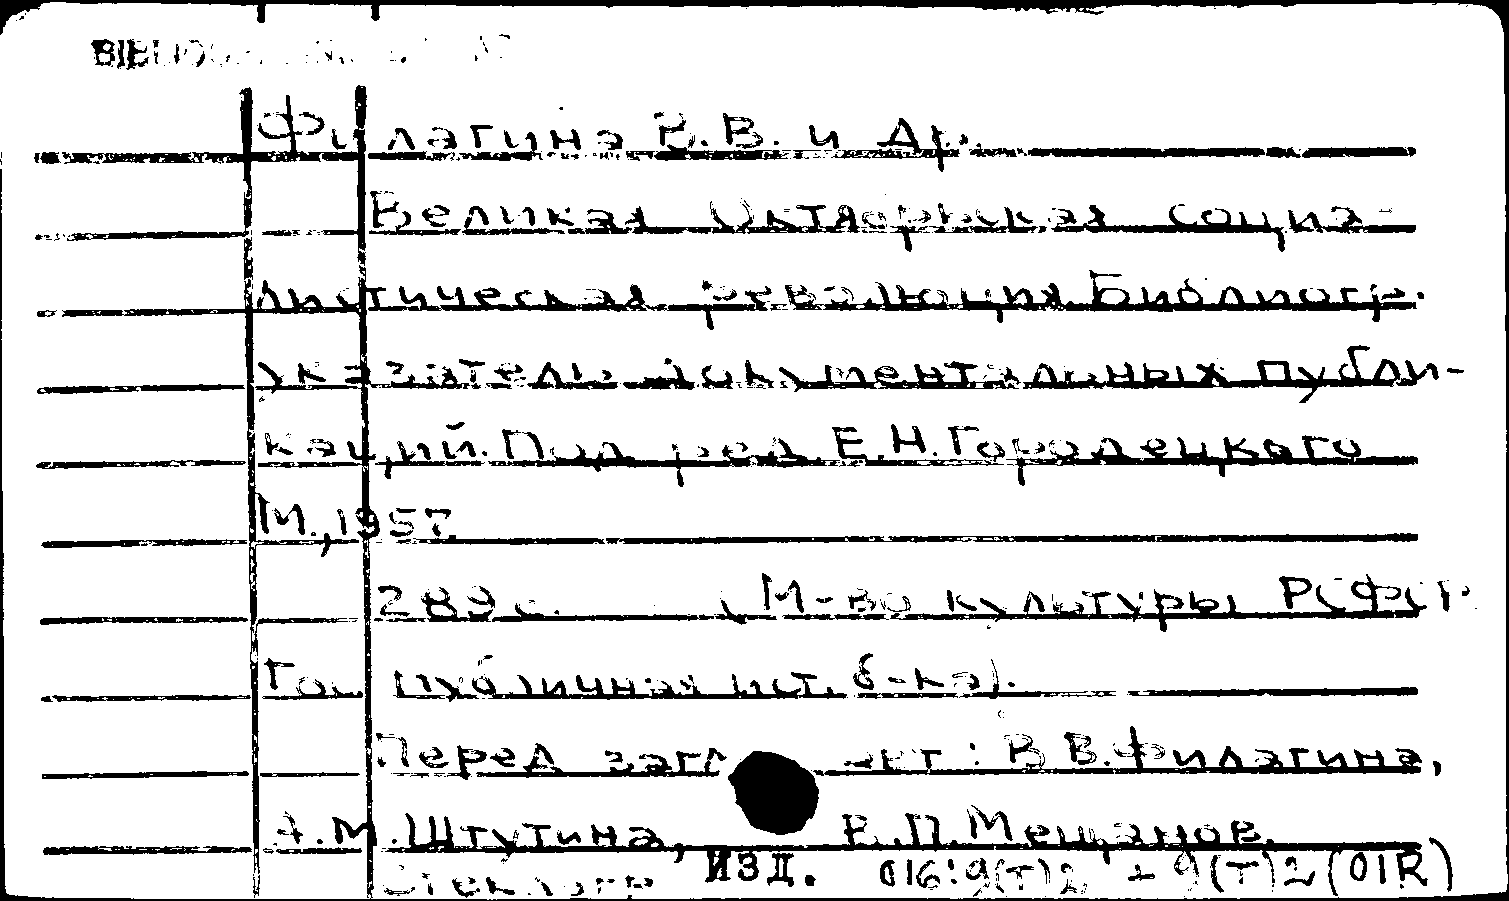 Филагина В.В. и др.
Великая Октябрьская социа-
листическая революция. Библиогр.
указатель документальных публи-
каций. Под ред. Е.Н. Городецкого
М., 1957.
289 с. (М-во культуры РСФСР
Гос. публичная ист. б-ка).
Перед загл. авт.: В.В. Филагина,
А.М. Штутина, В.П. Мещанов.
Стеклогр. изд. 016:9(Т)2 + 9(Т)2(01R)